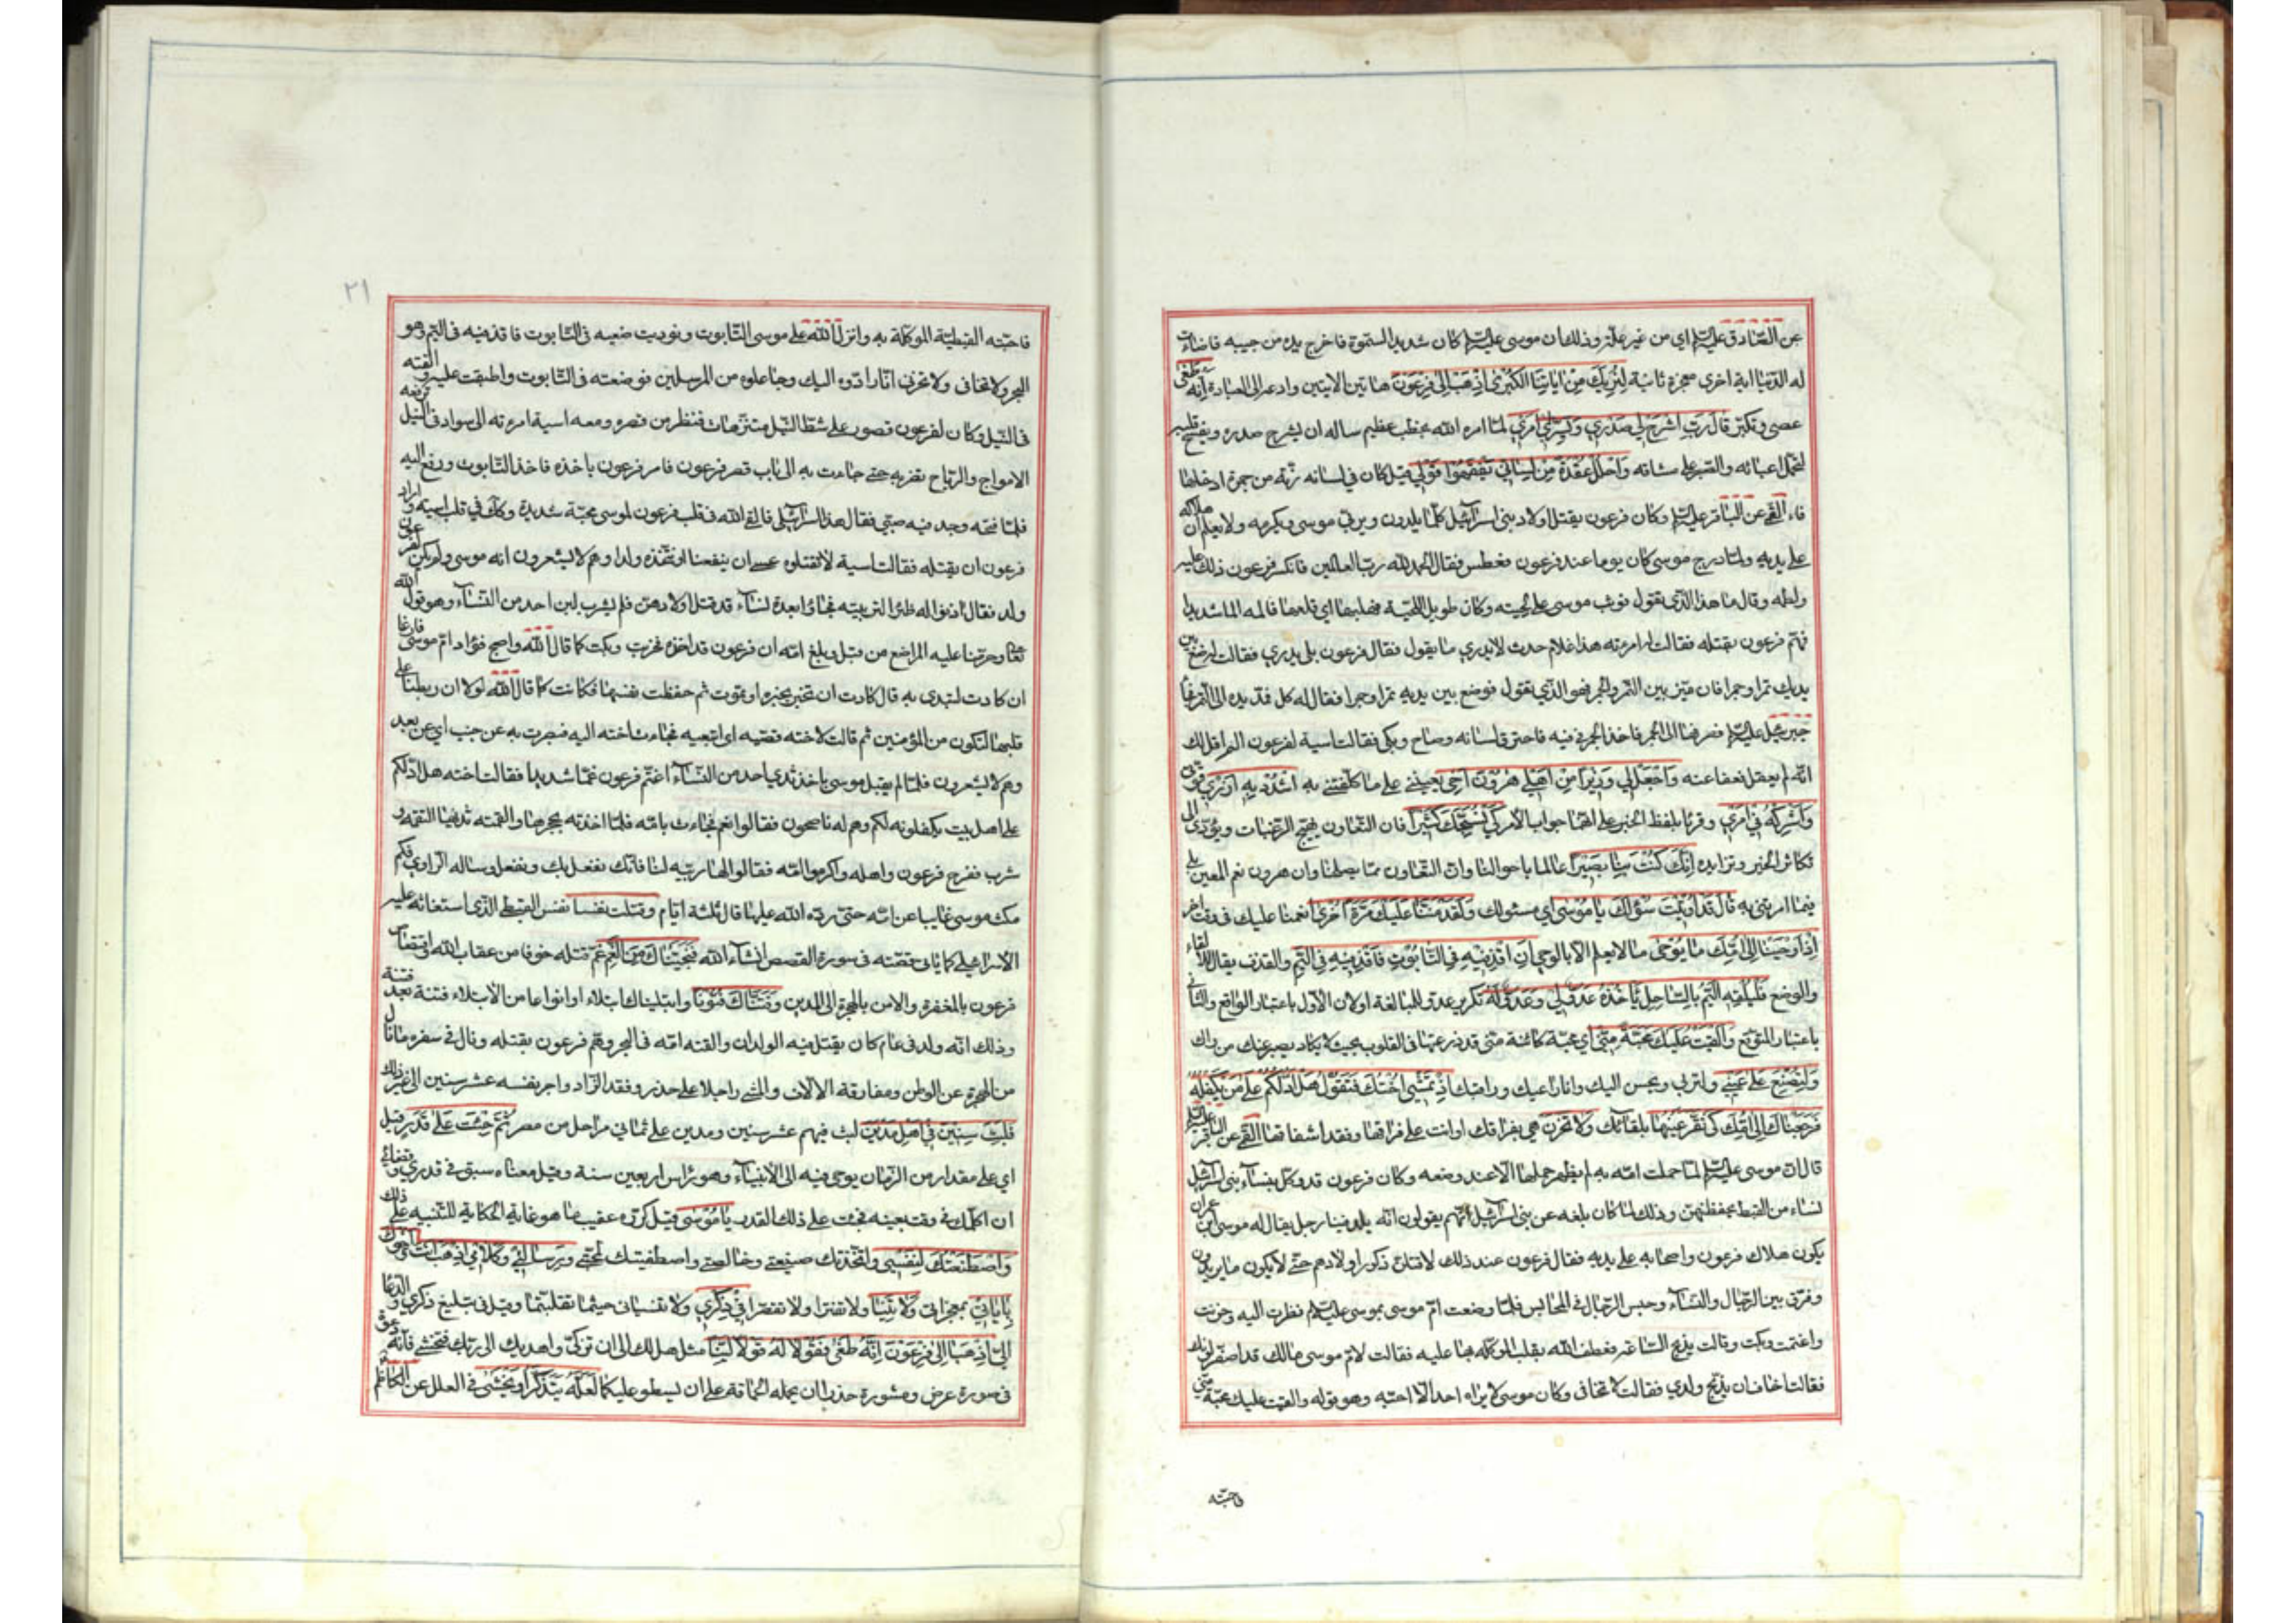 عن الصّادق عليه السلم اي من غير علّة وذلك ان موسى عليه السلم كان شديد السمرة فاخرج يده من جيبه فاضاءت
له الدّنيا اية اخرى معجزة ثانية لِنُرِيَكَ مِنْ اٰيَاتِنَا الْكُبْرٰى اِذْهَبْ اِلٰى فِرْعَوْنَ بهاتين الايتين وادعه الى العبادة اِنَّهُ طَغٰى
عصى وتكبّر قَالَ رَبِّ اشْرَحْ لِي صَدْرِي وَيَسِّرْ لِي اَمْرِي لمّا امره الله بخطب عظيم ساله ان يشرح صدره ويفسح قلبه
لتحمّل اعبائه والصّبر على مشاقه وَاحْلُلْ عُقْدَةً مِنْ لِسَانِي يَفْقَهُوا قَوْلِي قيل كان في لسانه رتّة من جمرة ادخلها
فاه القمّي عن الباقر عليه السلم وكان فرعون يقتل اولاد بني اسرائيل كلّما يلدون ويربّي موسى ويكرمه ولا يعلم ان هلاكه
على يديه ولمّا درج موسى كان يوما عند فرعون فعطس فقال الحمد لله ربّ العالمين فانكر فرعون ذلك عليه
ولطمه وقال ما هذا الّذي تقول فوثب موسى على لحيته وكان طويل اللحية فهلبها اي قلعها فالمه الما شديدا
فهمّ فرعون بقتله فقالت له امرءته هذا غلام حدث لا يدري ما يقول فقال فرعون بلى يدري فقالت له ضع بين
يديك تمرا وجمرا فان ميّز بين التّمر والجمر فهو الّذي تقول فوضع بين يديه تمرا وجمرا فقال له كل فمدّ يده الى التّمر فجاء
جبرئيل عليه السلم فصرفها الى الجمر فاخذ الجمر في فيه فاحترق لسانه وصاح وبكى فقالت اسية لفرعون الم اقل لك
انّه لم يعقل فعفا عنه وَاجْعَلْ لِي وَزِيرًا مِنْ اَهْلِي هٰرُونَ اَخِي يعينني على ما كلّفتني به اشْدُدْ بِهِ اَزْرِي قوّتي
وَاَشْرِكْهُ فِي اَمْرِي وقرئا بلفظ الخبر على انّهما جواب الامر كَيْ نُسَبِّحَكَ كَثِيرًا فان التّعاون يهيّج الرّغبات ويؤدّي الى
تكاثر الخير وتزايده اِنَّكَ كُنْتَ بِنَا بَصِيرًا عالما باحوالنا وانّ التّعاون ممّا يصلحنا وان هرون نعم المعين لي
فيما امرتني به قَالَ قَدْ اُوتِيتَ سُؤْلَكَ يَا مُوسٰى اي مسئولك وَلَقَدْ مَنَنَّا عَلَيْكَ مَرَّةً اُخْرٰى انعمنا عليك في وقت اخر
اِذْ اَوْحَيْنَا اِلٰى اُمِّكَ مَا يُوحٰى ما لا يعلم الّا بالوحي اَنِ اقْذِفِيهِ فِي التَّابُوتِ فَاقْذِفِيهِ فِي الْيَمِّ والقذف يقال للالقاء
والوضع فَلْيُلْقِهِ الْيَمُّ بِالسَّاحِلِ يَأْخُذْهُ عَدُوٌّ لِي وَعَدُوٌّ لَهُ تكرير عدوّ للمبالغة او لان الاوّل باعتبار الواقع والثّاني
باعتبار المتوقّع وَاَلْقَيْتُ عَلَيْكَ مَحَبَّةً مِنِّي اي محبّة كائنة منّي قد زرعتها في القلوب بحيث لا يكاد يصبر عنك من راك
وَلِتُصْنَعَ عَلٰى عَيْنِي ولتربى ويحسن اليك وانا راعيك وراقبك اِذْ تَمْشِي اُخْتُكَ فَتَقُولُ هَلْ اَدُلُّكُمْ عَلٰى مَنْ يَكْفُلُهُ
فَرَجَعْنَاكَ اِلٰى اُمِّكَ كَيْ تَقَرَّ عَيْنُهَا بلقائك وَلَا تَحْزَنَ هي بفراقك او انت على فراقها وفقد اشفاقها القمّي عن الباقر عليه السلم
قال انّ موسى عليه السلم لمّا حملت امّه به لم يظهر حملها الّا عند وضعه وكان فرعون قد وكّل بنساء بني اسرائيل
نساء من القبط يحفظنهنّ وذلك لما كان بلغه عن بني اسرائيل انّهم يقولون انّه يلد فينا رجل يقال له موسى ابن عمران
يكون هلاك فرعون واصحابه على يديه فقال فرعون عند ذلك لاقتلنّ ذكور اولادهم حتّى لا يكون ما يريدون
وفرّق بين الرّجال والنّساء وحبس الرّجال في المحابس فلمّا وضعت امّ موسى بموسى عليه السلم نظرت اليه وحزنت
واغتمت وبكت وقالت يذبح السّاعة فعطف الله بقلب الموكّلة بها عليه فقالت لامّ موسى ما لك قد اصفرّ لونك
فقالت اخاف ان يذبح ولدي فقالت لا تخافي وكان موسى لا يراه احد الّا احبّه وهو قوله والقيت عليك محبّة منّي
فاحبّته
٢١
فاحبّته القبطيّة الموكّلة به وانزل الله على موسى التّابوت ونوديت ضعيه في التّابوت فاقذفيه في اليمّ وهو
البحر ولا تخافي ولا تحزني انّا رادّوه اليك وجاعلوه من المرسلين فوضعته في التّابوت واطبقت عليه والقته
في النّيل وكان لفرعون قصور على شطّ النّيل متنزّهات فنظر من قصره ومعه اسية امرءته الى سواد في النّيل ترفعه
الامواج والرّياح تضربه حتّى جاءت به الى باب قصر فرعون فامر فرعون باخذه فاخذ التّابوت ورفع اليه
فلمّا فتحه وجد فيه صبّي فقال هذا اسرائيلي فالقى الله في قلب فرعون لموسى محبّة شديدة وكذلك في قلب اسية واراد
فرعون ان يقتله فقالت اسية لا تقتلوه عسى ان ينفعنا او نتّخذه ولدا وهم لا يشعرون انه موسى ولم يكن لفرعون
ولد فقال ادنوا له ظئرا لتربيته فجاؤا بعدة نساء قد قتل اولادهنّ فلم يشرب لبن احد من النّساء وهو قول الله
تعالى وحرّمنا عليه المراضع من قبل وبلغ امّه ان فرعون قد اخذه فحزنت وبكت كما قال الله واصبح فؤاد امّ موسى فارغا
ان كادت لتبدي به قال كادت ان تخبر بخبره او تموت ثم حفظت نفسها فكانت كما قال الله لولا ان ربطنا على
قلبها لتكون من المؤمنين ثم قالت لاخته قصّيه اي اتبعيه فجاءت اخته اليه فبصرت به عن جنب اي عن بعد
وهم لا يشعرون فلمّا لم يقبل موسى باخذ ثدي احد من النّساء اغتمّ فرعون غمّا شديدا فقالت اخته هل ادلّكم
على اهل بيت يكفلونه لكم وهم له ناصحون فقالوا نعم فجاءت بامّه فلمّا اخذته بحجرها والقمته ثديها التقمه و
شرب ففرح فرعون واهله واكرموا امّه فقالوا لها ربّيه لنا فانّك نفعل بك ونفعل وساله الراوي فكم
مكث موسى غايبا عن امّه حتى ردّه الله عليها قال ثلثة ايّام وَقَتَلْتَ نَفْسًا نفس القبطي الّذي استغاثه عليه
الاسرائيلي كما ياتي قصّته في سورة القصص انشاء الله فَنَجَّيْنَاكَ مِنَ الْغَمِّ غمّ قتله خوفا من عقاب الله واقتصاص
فرعون بالمغفرة والامن بالهجرة الى المدين وَفَتَنَّاكَ فُتُونًا وابتليناك ابتلاء او انواعا من الابتلاء فتنة بعد فتنة
وذلك انّه ولد في عام كان يقتل فيه الولدان والقته امّه في البحر وهمّ فرعون بقتله ونال في سفره ما نال
من الهجرة عن الوطن ومفارقة الالاف والمشي راجلا على حذر وفقد الزّاد واجر نفسه عشر سنين الى غير ذلك
فَلَبِثْتَ سِنِينَ فِي اَهْلِ مَدْيَنَ لبث فيهم عشر سنين ومدين على ثماني مراحل من مصر ثُمَّ جِئْتَ عَلٰى قَدَرٍ قيل
اي على مقدار من الزّمان يوحى فيه الى الانبياء وهو رأس اربعين سنة وقيل معناه سبق في قدري وقضائي
ان اكلّمك في وقت بعينه فجئت على ذلك القدر يَا مُوسٰى قيل كرّره عقيب ما هو غاية الحكاية للتّنبيه على ذلك
وَاصْطَنَعْتُكَ لِنَفْسِي واتّخذتك صنيعتي وخالصتي واصطفيتك لمحبّتي وبرسالتي وكلامي اِذْهَبْ اَنْتَ وَاَخُوكَ
بِاٰيَاتِي بمعجزاتي وَلَا تَنِيَا ولا تفترا ولا تقصّرا فِي ذِكْرِي ولا تنسياني حيثما تقلبتما وقيل في تبليغ ذكري والدّعاء
اليّ اِذْهَبَا اِلٰى فِرْعَوْنَ اِنَّهُ طَغٰى فَقُولَا لَهُ قَوْلًا لَيِّنًا مثل هل لك الى ان تزكّى واهديك الى ربّك فتخشى فانّه دعوة
في صورة عرض ومشورة حذرا ان يحمله الحماقة على ان يسطو عليكما لَعَلَّهُ يَتَذَكَّرُ اَوْ يَخْشٰى في العلل عن الكاظم